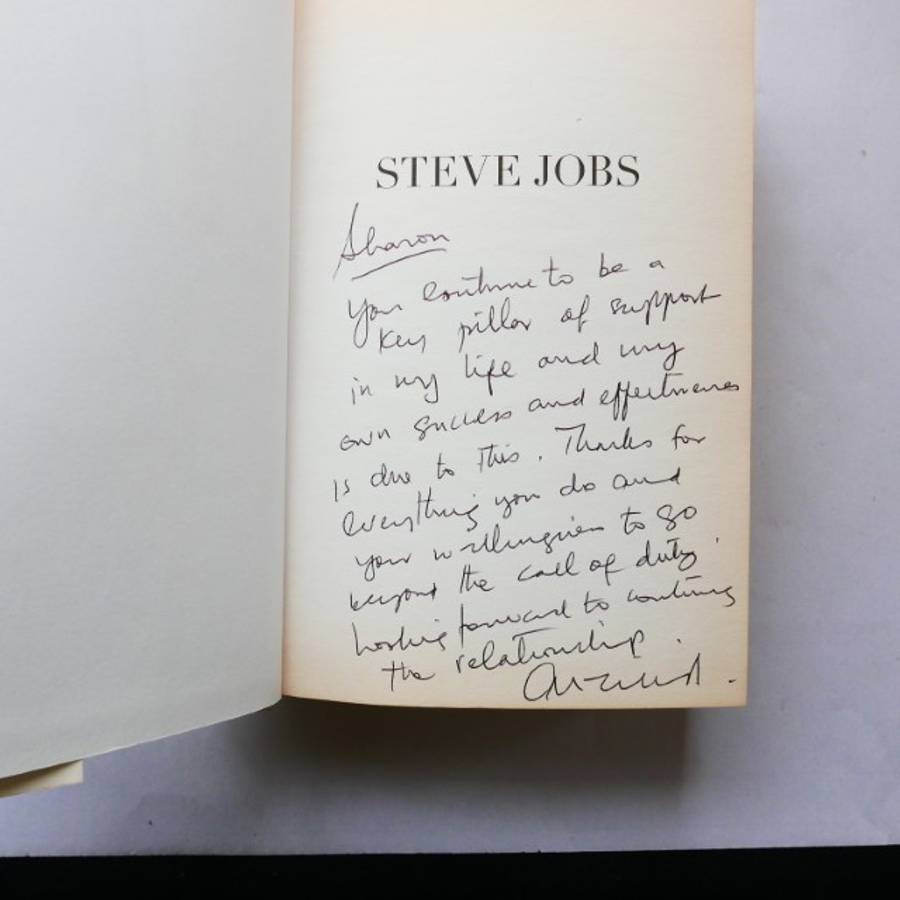 STEVE JOBS
Sharon
You continue to be a
key pillar of support
in my life and my
own success and effectiveness
is due to this. Thanks for
everything you do and
your willingness to go
beyond the call of duty.
Looking forward to continuing
the relationship.
Arvind.